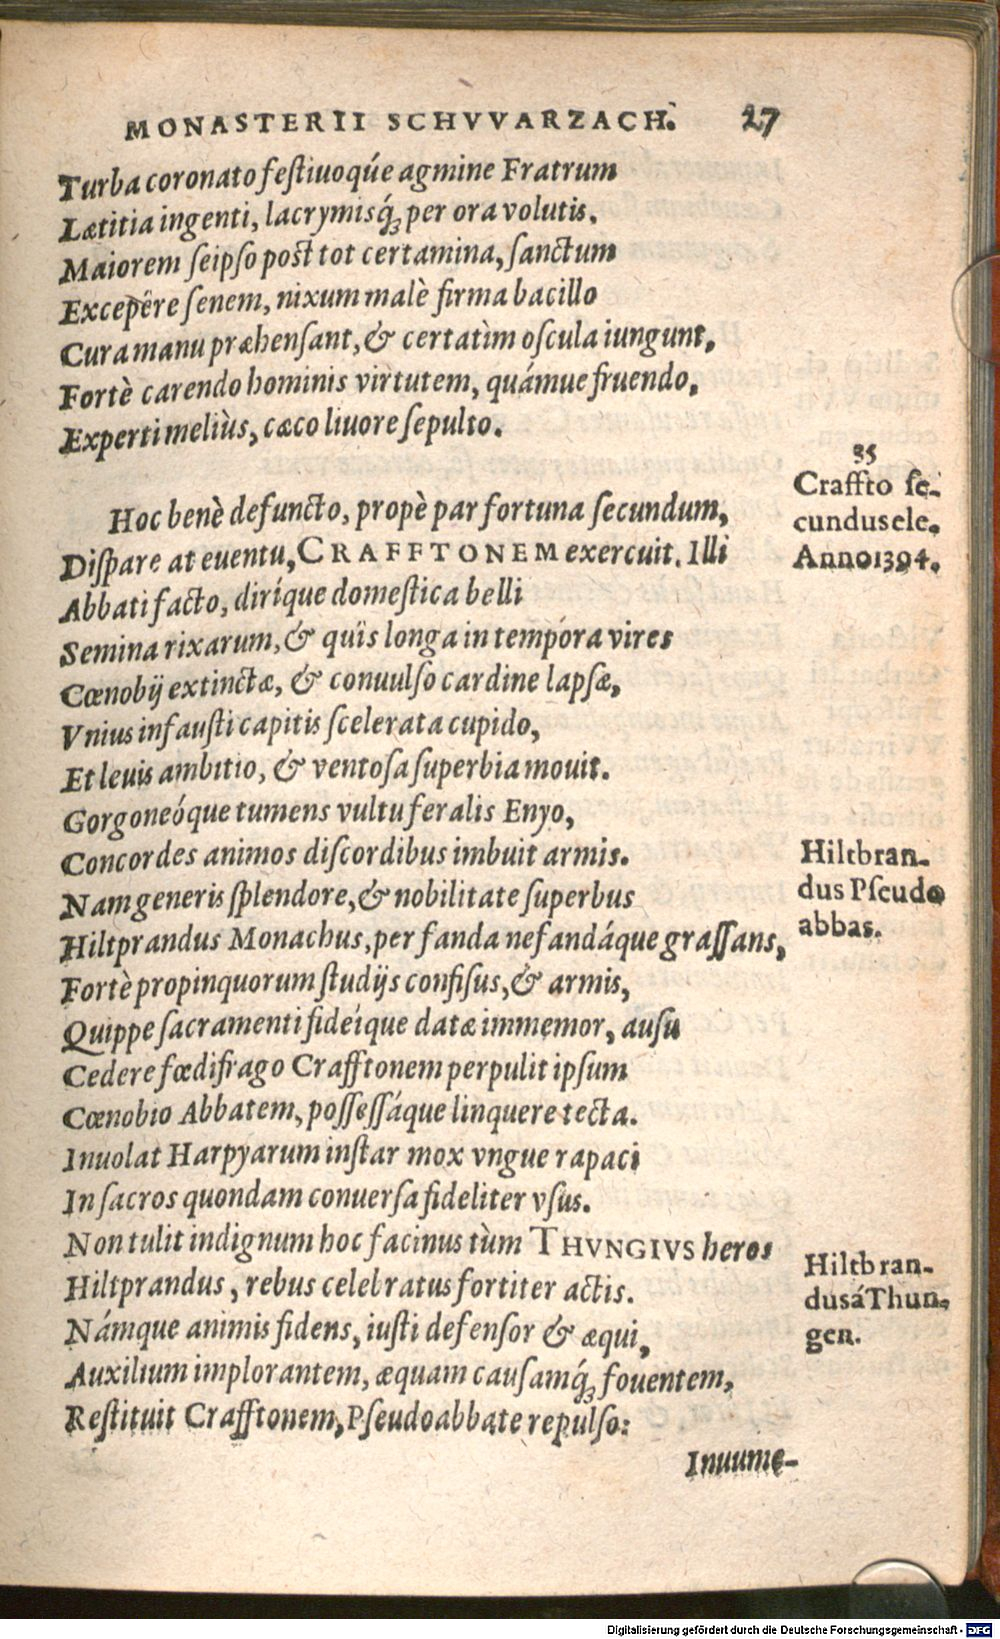 MONASTERII SCHVVARZACH. 27
Turba coronato festiuoqúe agmine Fratrum
Lætitia ingenti, lacrymisq́; per ora volutis.
Maiorem seipso post tot certamina, sanctum
Excepêre senem, nixum malè firma bacillo
Cura manu præhensant, & certatìm oscula iungunt,
Fortè carendo hominis virtutem, quámue fruendo,
Experti meliùs, cæco liuore sepulto.
Hoc benè defuncto, propè par fortuna secundum,
Dispare at euentu, CRAFFTONEM exercuit. Illi
Abbati facto, diríque domestica belli
Semina rixarum, & quïs longa in tempora vires
Cœnobij extinctæ, & conuulso cardine lapsæ,
Vnius infausti capitis scelerata cupido,
Et leuis ambitio, & ventosa superbia mouit.
Gorgoneóque tumens vultu feralis Enyo,
Concordes animos discordibus imbuit armis.
Nam generis splendore, & nobilitate superbus
Hiltprandus Monachus, per fanda nefandáque grassans,
Fortè propinquorum studijs confisus, & armis,
Quippe sacramenti fideíque datæ immemor, ausu
Cedere fœdifrago Crafftonem perpulit ipsum
Cœnobio Abbatem, possessáque linquere tecta.
Inuolat Harpyarum instar mox vngue rapaci
In sacros quondam conuersa fideliter vsus.
Non tulit indignum hoc facinus tùm THVNGIVS heros
Hiltprandus, rebus celebratus fortiter actis.
Námque animis fidens, iusti defensor & æqui,
Auxilium implorantem, æquam causamq́; fouentem,
Restituit Crafftonem, Pseudoabbate repulso:
Inuume-
35
Craffto se-
cundus ele.
Anno 1394.
Hiltbran-
dus Pseudo
abbas.
Hiltbran-
dus á Thun,
gen.
Digitalisierung gefördert durch die Deutsche Forschungsgemeinschaft - DFG